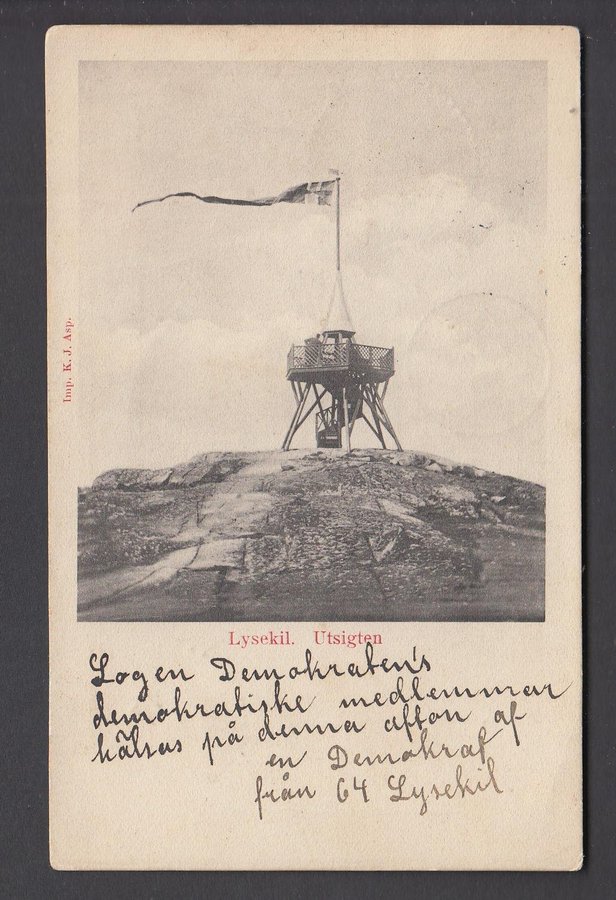 Imp. K. J. Asp.
Lysekil. Utsigten
Logen Demokraten's
demokratiske medlemmar
hälsas på denna afton af
en Demokrat
från 64 Lysekil